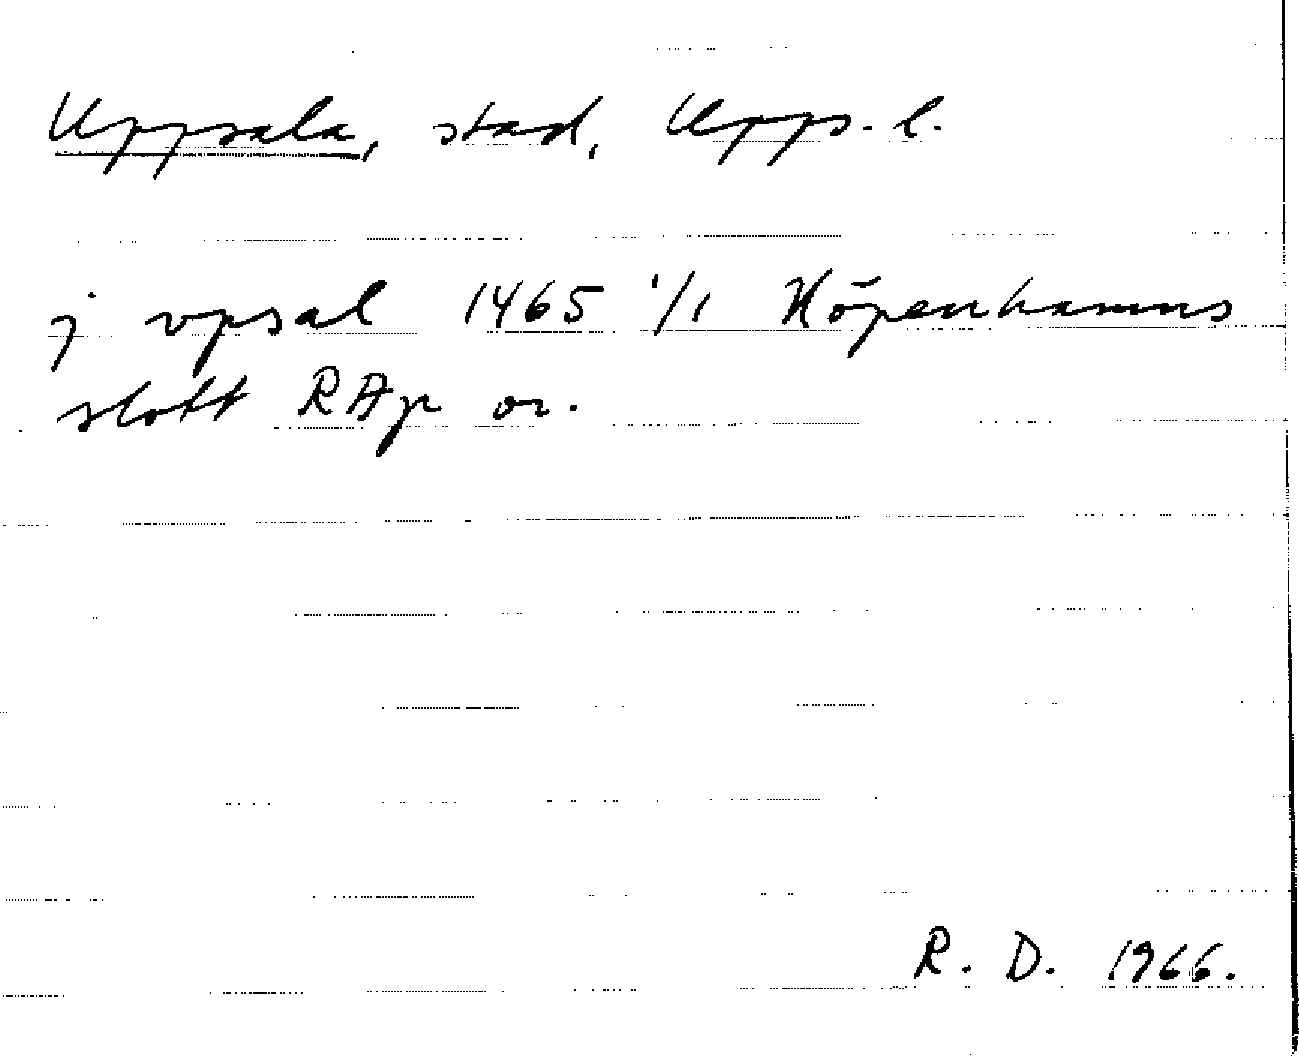 Uppsala, stad, Upps. l.
j vpsal 1465 1/1 Köpenhamns
slott RAp or.
R. D. 1966.